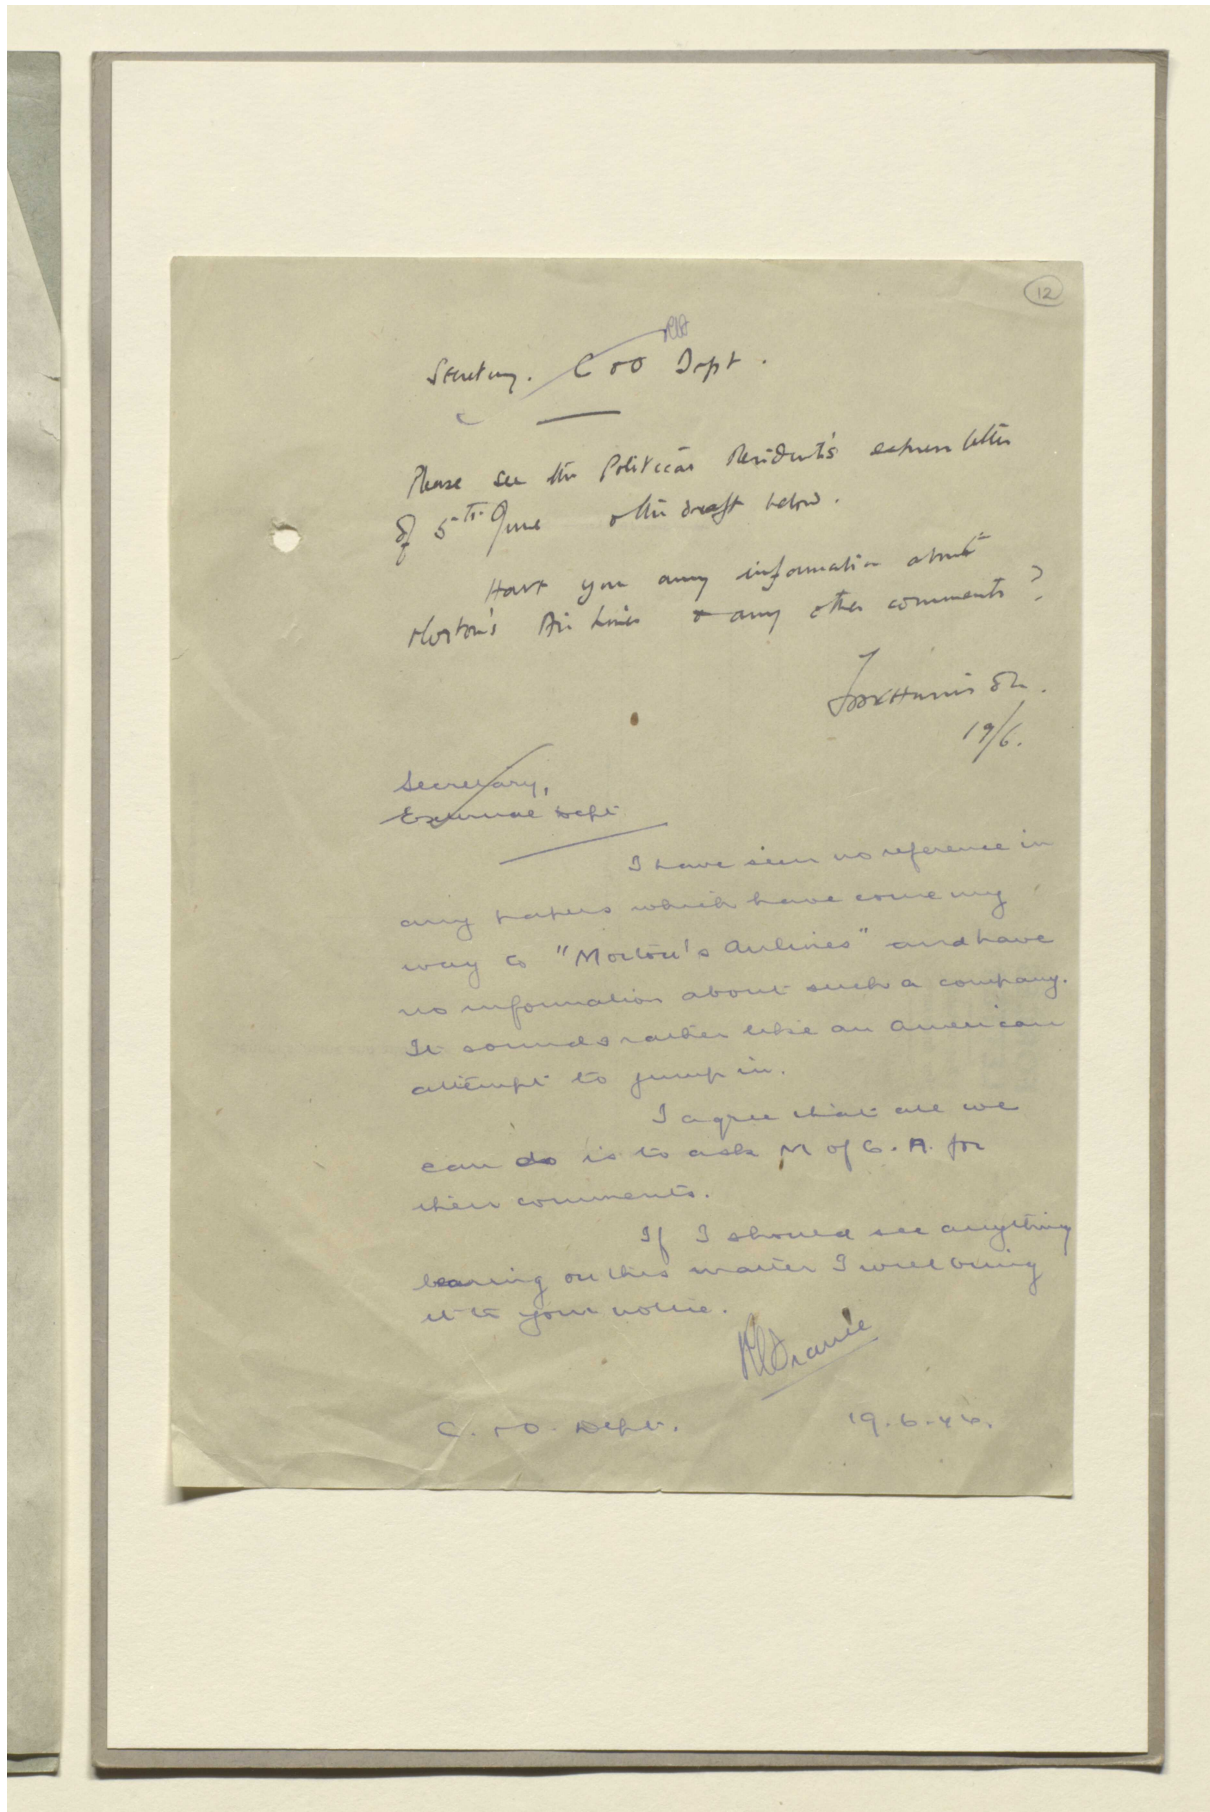 12
Secretary. C & O Dept.
Please see the Political Resident's express letter
of 5th June & the draft below.
Have you any information about
Morton's Air Lines & any other comments?
19/6.
Secretary,
External Dept
I have seen no reference in
any papers which have come my
way to "Morton's Airlines" and have
no information about such a company.
It sounds rather like an American
attempt to jump in.
I agree that all we
can do is to ask M of C.A. for
their comments.
If I should see anything
bearing on this matter I will bring
it to your notice.
C. & O. Dept. 19.6.46.